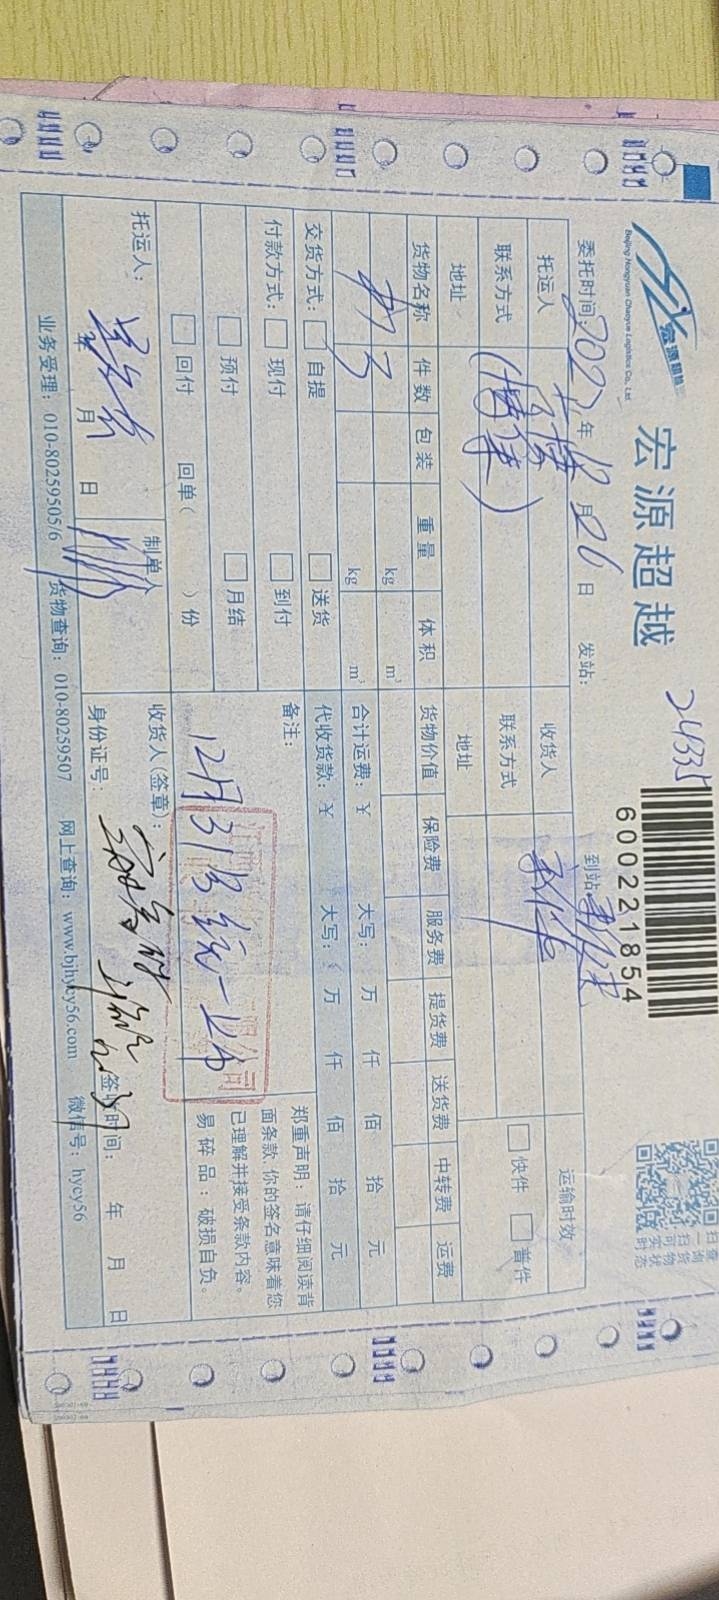 宏源超越
Beijing Hongyuan Chaoyue Logistics Co., Ltd.
宏源超越
24335
600221854
扫一扫
查询货物实时状态
委托时间: 年 12月26日 发站: 到站:
托运人 收货人 运输时效
联系方式 联系方式 快件 普件
地址 地址
货物名称 件数 包装 重量 体积 货物价值 保险费 服务费 提货费 送货费 中转费 运费
3 kg m³
kg m³
合计运费:¥ 大写: 万 仟 佰 拾 元
代收货款:¥ 大写: 万 仟 佰 拾 元
交货方式: 自提 送货
付款方式: 现付 到付
预付 月结
回付 回单( )份
备注:
12月31日统一上
郑重声明:请仔细阅读背
面条款,你的签名意味着您
已理解并接受条款内容。
易碎品:破损自负。
托运人: 年 月 日
制单人
收货人(签章):
身份证号: 签收时间: 年 月 日
业务受理:010-80259505/6 货物查询:010-80259507 网上查询:www.bjhycy56.com 微信号:hycy56